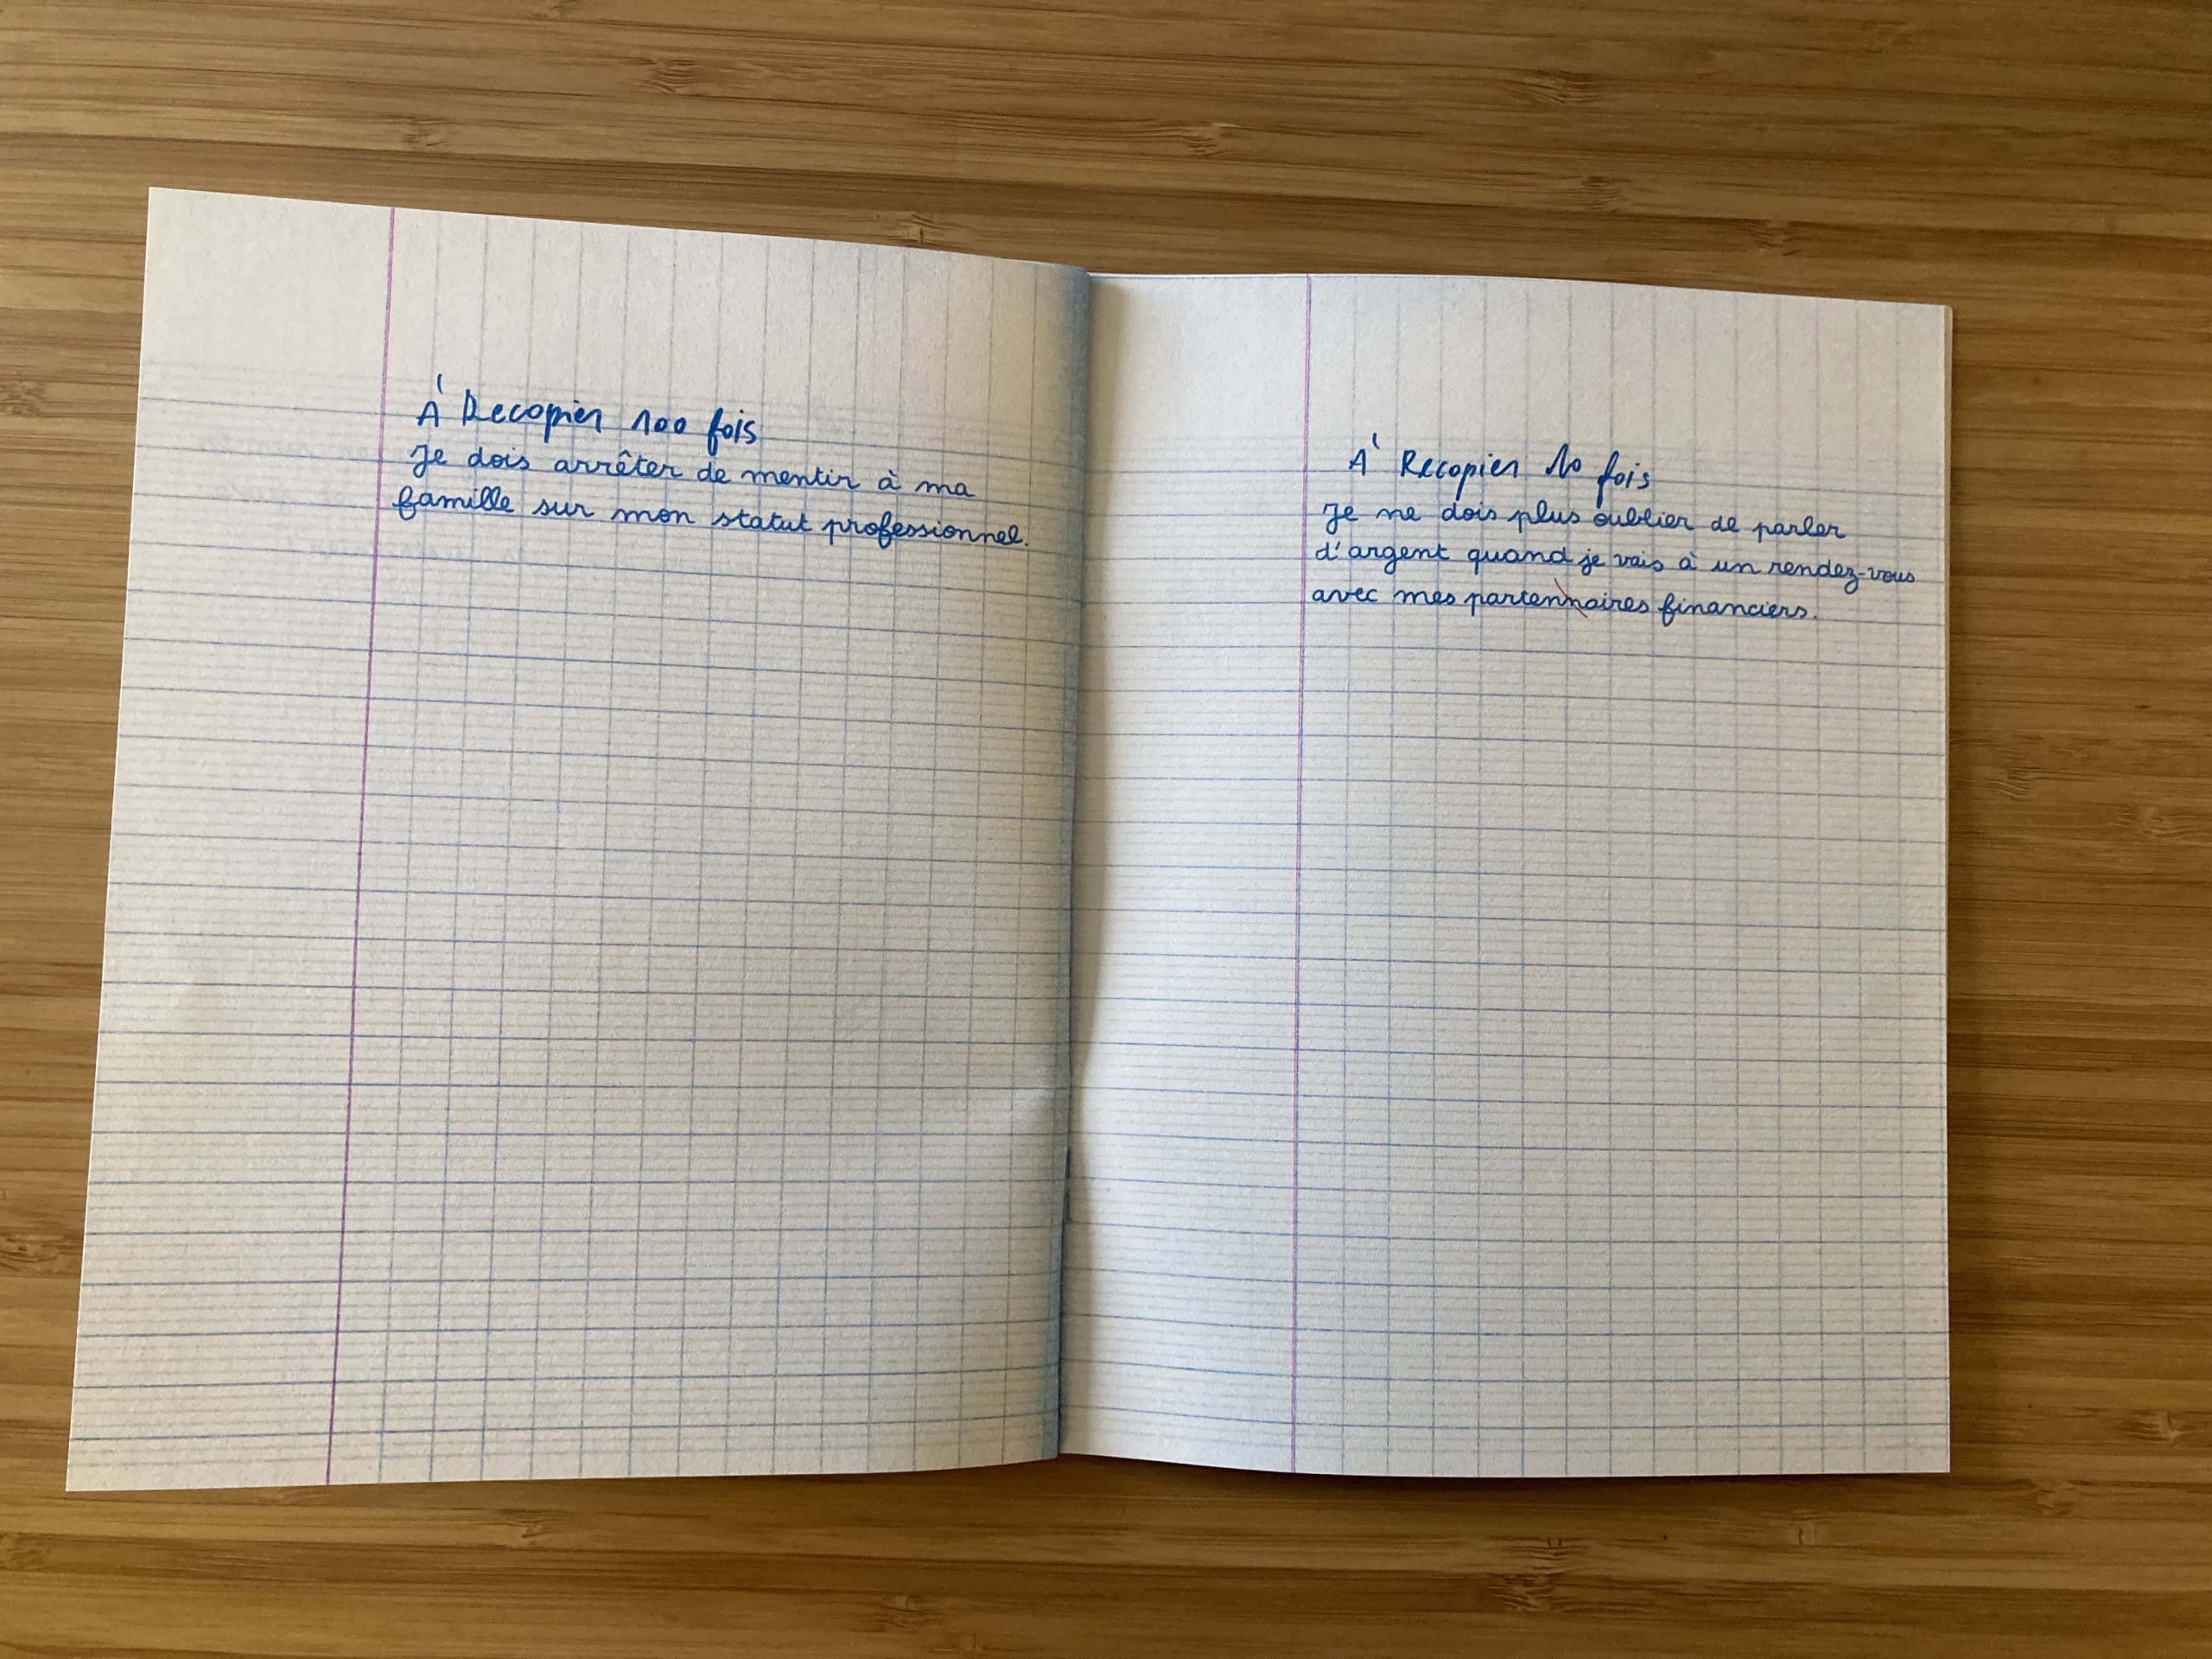 À Recopier 100 fois
Je dois arrêter de mentir à ma
famille sur mon statut professionnel.
À Recopier 10 fois
Je ne dois plus oublier de parler
d'argent quand je vais à un rendez-vous
avec mes partennaires financiers.